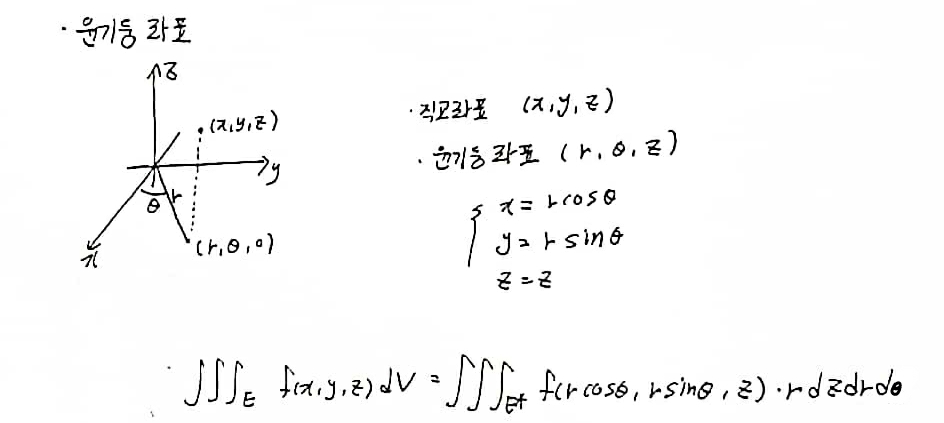 · 원기둥 좌표
z
(x,y,z)
y
θ
r
(r,θ,0)
x
· 직교좌표 (x,y,z)
· 원기둥 좌표 (r,θ,z)
x = rcosθ
y = r sinθ
z = z
∭_E f(x,y,z)dV = ∭_E* f(rcosθ, rsinθ, z)·rdzdrdθ